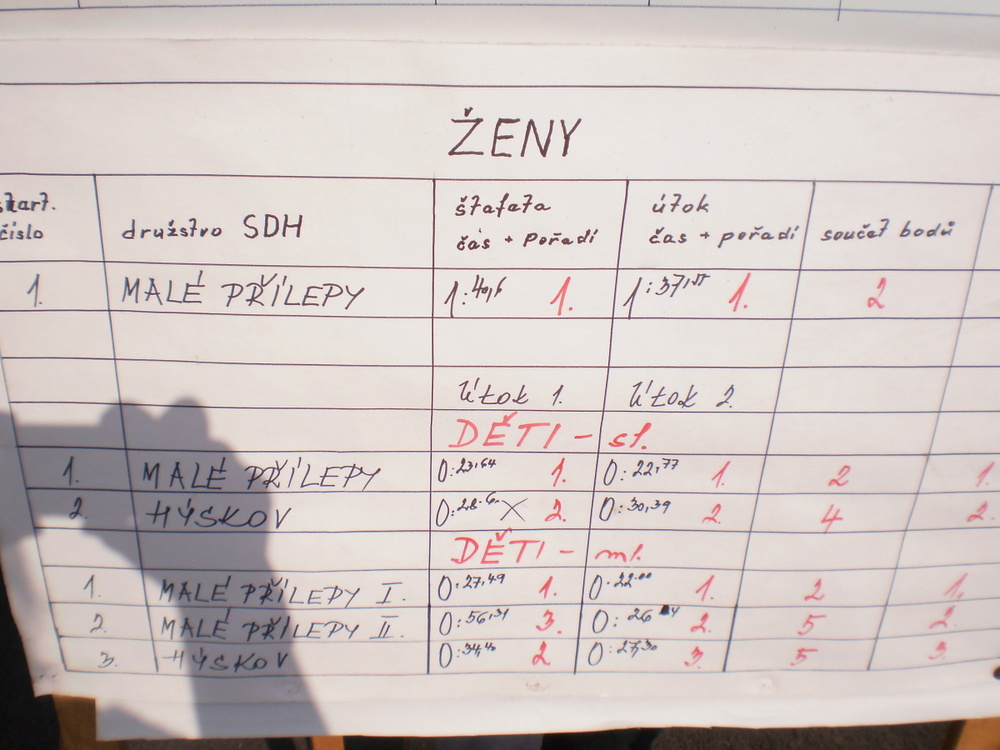 ŽENY
start. číslo družstvo SDH štafata čas + pořadí útok čas + pořadí součet bodů
1. MALÉ PŘÍLEPY 1:40,6 1. 1:37,55 1. 2
Útok 1. Útok 2.
DĚTI - st.
1. MALÉ PŘÍLEPY 0:23,64 1. 0:22,77 1. 2 1.
2. HÝSKOV 0:28.6. X 2. 0:30,39 2. 4 2.
DĚTI - ml.
1. MALÉ PŘÍLEPY I. 0:27,49 1. 0:22.00 1. 2 1.
2. MALÉ PŘÍLEPY II. 0:56,31 3. 0:26 2. 5 2.
3. HÝSKOV 0:34,40 2 0:27,30 3. 5 3.